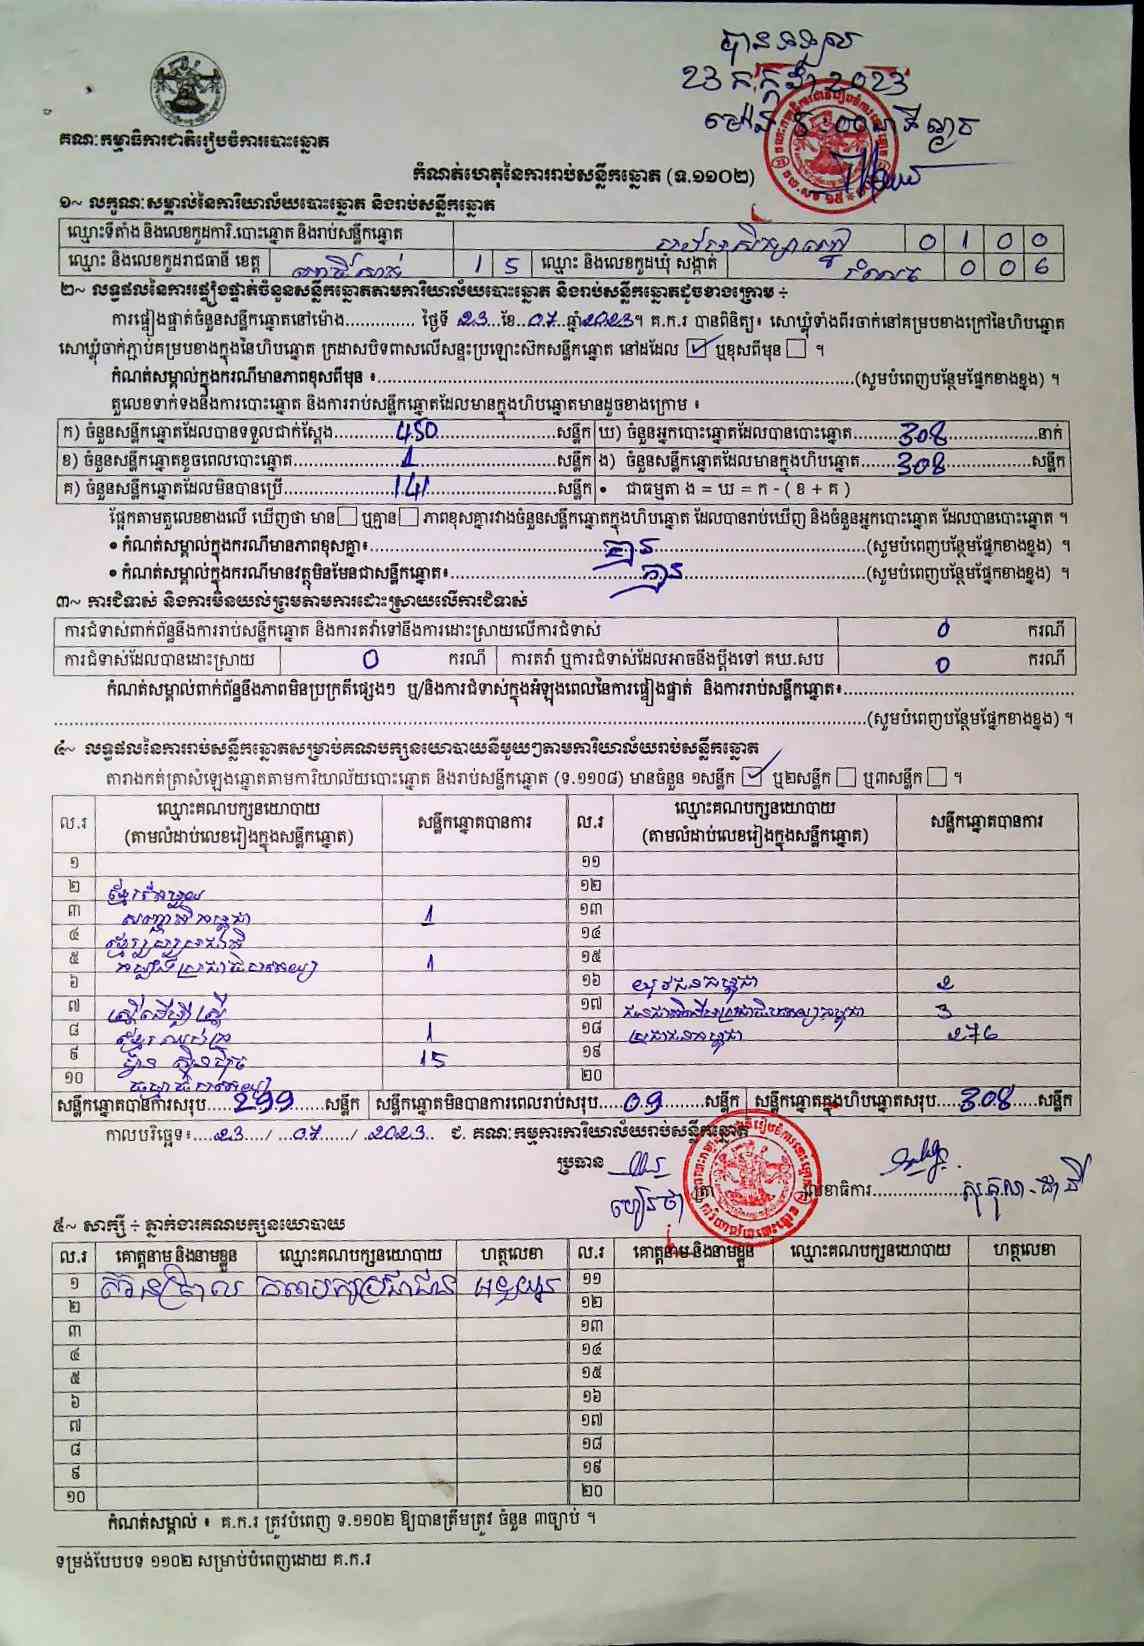 បានទទួល
23 កក្កដា 2023
ម៉ោង 8:00 នាទីល្ងាច
គណៈកម្មាធិការជាតិរៀបចំការបោះឆ្នោត
កំណត់ហេតុនៃការរាប់សន្លឹកឆ្នោត (ទ.១១០២)
១~ លក្ខណៈសម្គាល់នៃការិយាល័យបោះឆ្នោត និងរាប់សន្លឹកឆ្នោត
ឈ្មោះទីតាំង និងលេខកូដការិ.បោះឆ្នោត និងរាប់សន្លឹកឆ្នោត 0 1 0 0
ឈ្មោះ និងលេខកូដរាជធានី ខេត្ត ពោធិ៍សាត់ 1 5 ឈ្មោះ និងលេខកូដឃុំ សង្កាត់ 0 0 6
២~ លទ្ធផលនៃការផ្ទៀងផ្ទាត់ចំនួនសន្លឹកឆ្នោតតាមការិយាល័យបោះឆ្នោត និងរាប់សន្លឹកឆ្នោតដូចខាងក្រោម ÷
ការផ្ទៀងផ្ទាត់ចំនួនសន្លឹកឆ្នោតនៅម៉ោង............... ថ្ងៃទី 23...ខែ...07...ឆ្នាំ2023។ គ.ក.រ បានពិនិត្យ៖ សោឃ្លុំទាំងពីរចាក់នៅគម្របខាងក្រៅនៃហិបឆ្នោត
សោឃ្លុំចាក់ភ្ជាប់គម្របខាងក្នុងនៃហិបឆ្នោត ក្រដាសបិទពាសលើសន្ទះប្រឡោះស៊កសន្លឹកឆ្នោត នៅដដែល ☑ ឬខុសពីមុន ☐ ។
កំណត់សម្គាល់ក្នុងករណីមានភាពខុសពីមុន ៖...............(សូមបំពេញបន្ថែមផ្នែកខាងខ្នង) ។
តួលេខទាក់ទងនឹងការបោះឆ្នោត និងការរាប់សន្លឹកឆ្នោតដែលមានក្នុងហិបឆ្នោតមានដូចខាងក្រោម ៖
ក) ចំនួនសន្លឹកឆ្នោតដែលបានទទួលជាក់ស្តែង............450............សន្លឹក ឃ) ចំនួនអ្នកបោះឆ្នោតដែលបានបោះឆ្នោត.........308............នាក់
ខ) ចំនួនសន្លឹកឆ្នោតខូចពេលបោះឆ្នោត............1............សន្លឹក ង) ចំនួនសន្លឹកឆ្នោតដែលមានក្នុងហិបឆ្នោត.........308............សន្លឹក
គ) ចំនួនសន្លឹកឆ្នោតដែលមិនបានប្រើ............141............សន្លឹក • ជាធម្មតា ង = ឃ = ក - ( ខ + គ )
ផ្អែកតាមតួលេខខាងលើ ឃើញថា មាន☐ ឬគ្មាន☐ ភាពខុសគ្នារវាងចំនួនសន្លឹកឆ្នោតក្នុងហិបឆ្នោត ដែលបានរាប់ឃើញ និងចំនួនអ្នកបោះឆ្នោត ដែលបានបោះឆ្នោត ។
• កំណត់សម្គាល់ក្នុងករណីមានភាពខុសគ្នា៖............គ្មាន............(សូមបំពេញបន្ថែមផ្នែកខាងខ្នង) ។
• កំណត់សម្គាល់ក្នុងករណីមានវត្ថុមិនមែនជាសន្លឹកឆ្នោត៖............គ្មាន............(សូមបំពេញបន្ថែមផ្នែកខាងខ្នង) ។
៣~ ការជំទាស់ និងការមិនយល់ព្រមតាមការដោះស្រាយលើការជំទាស់
ការជំទាស់ពាក់ព័ន្ធនឹងការរាប់សន្លឹកឆ្នោត និងការតវ៉ាទៅនឹងការដោះស្រាយលើការជំទាស់ 0 ករណី
ការជំទាស់ដែលបានដោះស្រាយ 0 ករណី ការតវ៉ា ឬការជំទាស់ដែលអាចនឹងប្តឹងទៅ គឃ.សប 0 ករណី
កំណត់សម្គាល់ពាក់ព័ន្ធនឹងភាពមិនប្រក្រតីផ្សេងៗ ឬ/និងការជំទាស់ក្នុងអំឡុងពេលនៃការផ្ទៀងផ្ទាត់ និងការរាប់សន្លឹកឆ្នោត៖...............
...............(សូមបំពេញបន្ថែមផ្នែកខាងខ្នង) ។
៤~ លទ្ធផលនៃការរាប់សន្លឹកឆ្នោតសម្រាប់គណបក្សនយោបាយនីមួយៗតាមការិយាល័យរាប់សន្លឹកឆ្នោត
តារាងកត់ត្រាសំឡេងឆ្នោតតាមការិយាល័យបោះឆ្នោត និងរាប់សន្លឹកឆ្នោត (ទ.១១០៨) មានចំនួន ១សន្លឹក ☑ ឬ២សន្លឹក ☐ ឬ៣សន្លឹក ☐ ។
ល.រ ឈ្មោះគណបក្សនយោបាយ (តាមលំដាប់លេខរៀងក្នុងសន្លឹកឆ្នោត) សន្លឹកឆ្នោតបានការ ល.រ ឈ្មោះគណបក្សនយោបាយ (តាមលំដាប់លេខរៀងក្នុងសន្លឹកឆ្នោត) សន្លឹកឆ្នោតបានការ
១ ១១
២ ខ្មែររួបរួម ១២
៣ សញ្ជាតិកម្ពុជា 1 ១៣
៤ ១៤
៥ កម្លាំងប្រជាធិបតេយ្យ 1 ១៥
៦ ១៦ យុវជនកម្ពុជា 2
៧ ស្ត្រីដើម្បីស្ត្រី ១៧ ជនជាតិដើមប្រជាធិបតេយ្យកម្ពុជា 3
៨ ខ្មែរឈប់ក្រ 1 ១៨ ប្រជាជនកម្ពុជា 276
៩ ហ៊្វុនស៊ិនប៉ិច 15 ១៩
១០ ធម្មាធិបតេយ្យ ២០
សន្លឹកឆ្នោតបានការសរុប.....299.......សន្លឹក សន្លឹកឆ្នោតមិនបានការពេលរាប់សរុប.....09.......សន្លឹក សន្លឹកឆ្នោតក្នុងហិបឆ្នោតសរុប.....308.....សន្លឹក
កាលបរិច្ឆេទ៖....23..../ ...07...../ 2023.. ជ. គណៈកម្មការការិយាល័យរាប់សន្លឹកឆ្នោត
ប្រធាន ត្រា លេខាធិការ..................
៥~ សាក្សី ÷ ភ្នាក់ងារគណបក្សនយោបាយ
ល.រ គោត្តនាម និងនាមខ្លួន ឈ្មោះគណបក្សនយោបាយ ហត្ថលេខា ល.រ គោត្តនាម និងនាមខ្លួន ឈ្មោះគណបក្សនយោបាយ ហត្ថលេខា
១ គណបក្សប្រជាជន ១១
២ ១២
៣ ១៣
៤ ១៤
៥ ១៥
៦ ១៦
៧ ១៧
៨ ១៨
៩ ១៩
១០ ២០
កំណត់សម្គាល់ ៖ គ.ក.រ ត្រូវបំពេញ ទ.១១០២ ឱ្យបានត្រឹមត្រូវ ចំនួន ៣ច្បាប់ ។
ទម្រង់បែបបទ ១១០២ សម្រាប់បំពេញដោយ គ.ក.រ